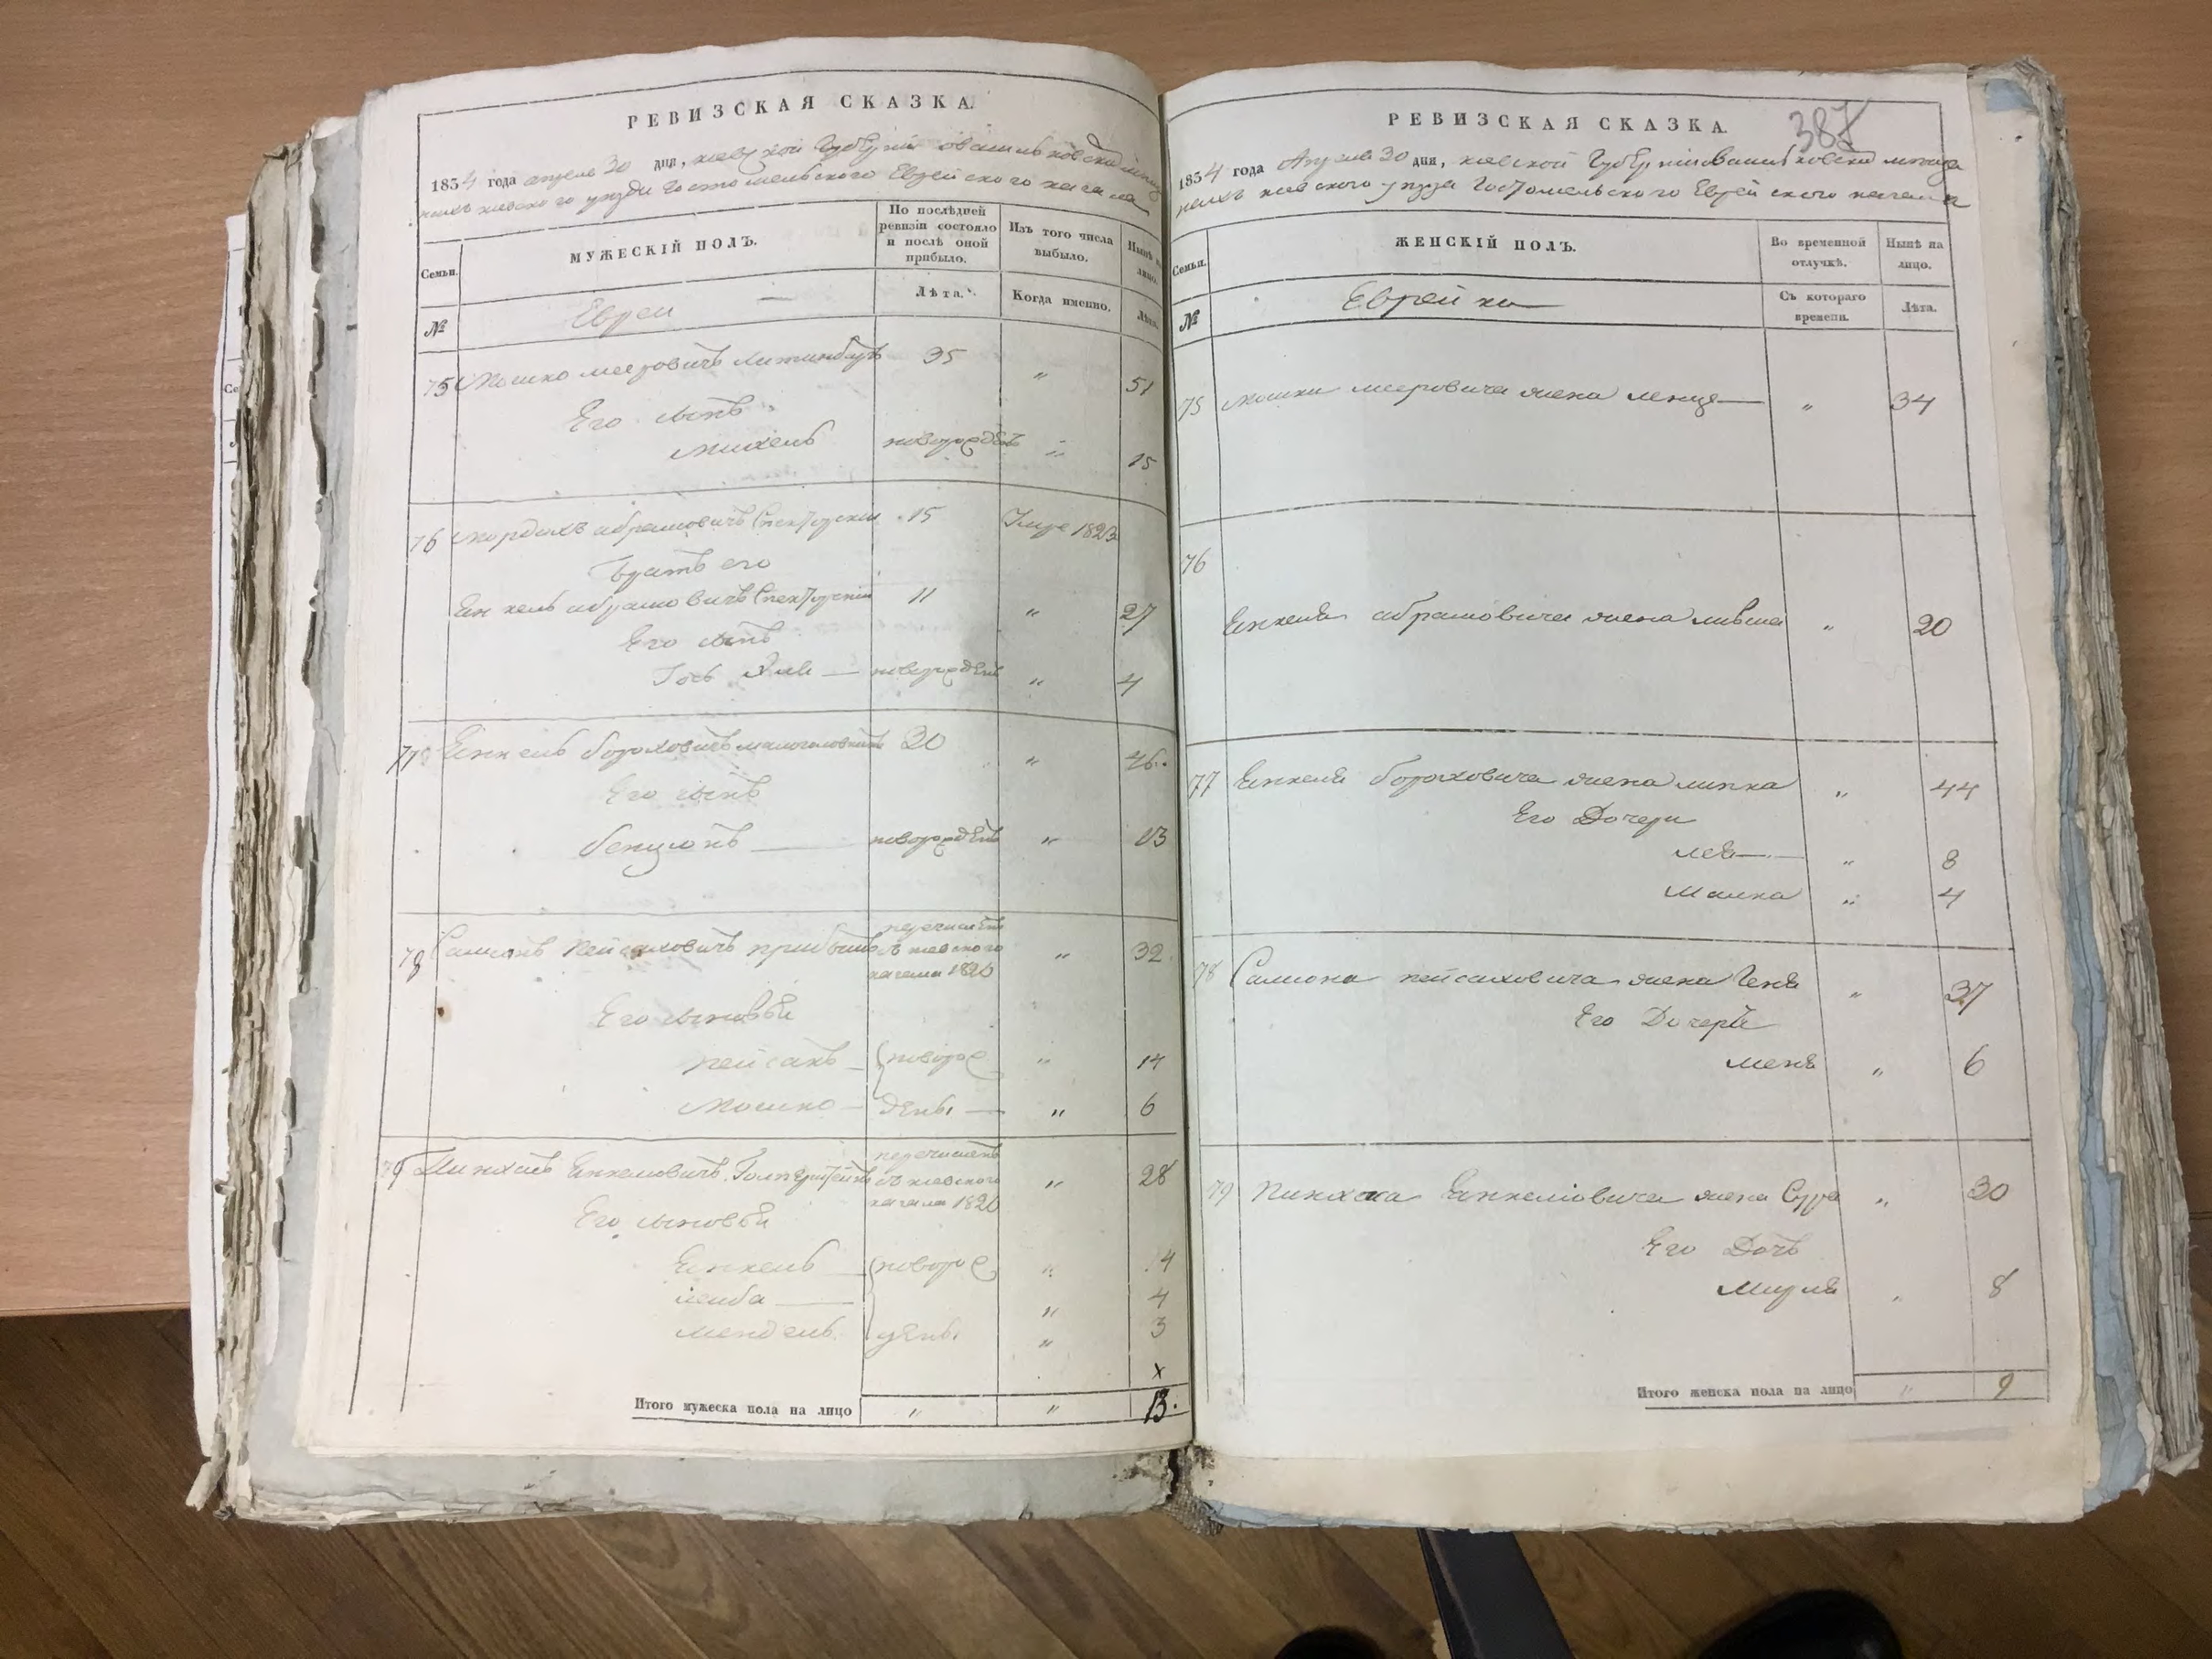 РЕВИЗСКАЯ СКАЗКА.
1834 года апреля 30 дня, киевской Губернии
киевского уезда Гостомельского Еврейского кагала
Семьи.
МУЖЕСКІЙ ПОЛЪ.
По послѣдней ревизіи состояло и послѣ оной прибыло.
Изъ того числа выбыло.
Нынѣ на лицо.
№
Евреи
Лѣта.
Когда именно.
Лѣта.
75 Мошко мееровичъ 35 " 51
Его сынъ
Михель новорожденъ " 15
76 Мордко абрамовичъ 15 Умре 1823
братъ его
Енкель абрамовичъ 11 " 27
Его сынъ
новорожденъ " 4
77 Енкель бороховичъ 30 " 46
Его сынъ
бенционъ новорожденъ " 13
перечисленъ
78 Самсонъ Пейсаховичъ съ киевского " 32
кагала 1820
Его сыновьи
пейсахъ — новорож " 14
Мошко — дены — " 6
перечисленъ
79 Пинхасъ Енкелевичъ съ киевского " 28
кагала 1820
Его сыновьи
Енкель новорож " 4
лейба — " 4
мендель дены " 3
x
Итого мужеска пола на лицо " " 13.
387
РЕВИЗСКАЯ СКАЗКА.
1834 года Апреля 30 дня, киевской Губернии
киевского уезда Гостомельского Еврейского кагала
Семьи.
ЖЕНСКІЙ ПОЛЪ.
Во временной отлучкѣ.
Нынѣ на лицо.
№
Еврейки
Съ котораго времени.
Лѣта.
75 Мошки мееровича жена " 34
76
Енкеля абрамовича жена ливша " 20
77 Енкеля бороховича жена " 44
Его Дочери
лея — " 8
Малка " 4
78 Самсона пейсаховича жена Геня " 37
Его Дочерь
меня " 6
79 Пинхаса Енкелiовича жена Сура " 30
Его Дочь
" 8
Итого женска пола на лицо " 9